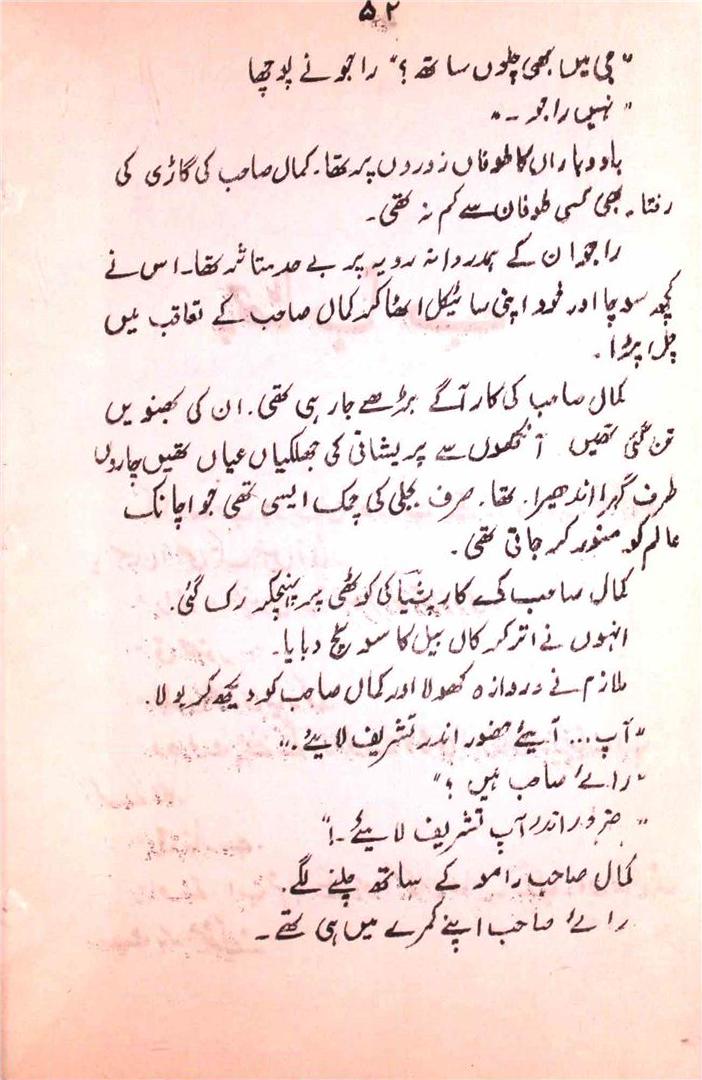 ۵۲
"جی میں بھی چلوں ساتھ؟" راجو نے پوچھا
"نہیں راجو ۔"
باد و باراں کا طوفان زوروں پر تھا۔ کمال صاحب کی گاڑی کی
رفتار بھی کسی طوفان سے کم نہ تھی۔
راجو ان کے ہمدردانہ رویہ پر بے حد متاثر تھا۔ اس نے
کچھ سوچا اور خود اپنی سائیکل اٹھا کر کمال صاحب کے تعاقب میں
چل پڑا۔
کمال صاحب کی کار آگے بڑھے جا رہی تھی۔ ان کی بھنویں
تن گئی تھیں آنکھوں سے پریشانی کی جھلکیاں عیاں تھیں چاروں
طرف گہرا اندھیرا۔ تھا۔ صرف بجلی کی چمک ایسی تھی جو اچانک
عالم کو منور کر جاتی تھی۔
کمال صاحب کے کار پشپا کی کوٹھی پر پہنچکر رک گئی۔
انہوں نے اتر کر کال بیل کا سوئچ دبایا۔
ملازم نے دروازہ کھولا اور کمال صاحب کو دیکھ کر بولا۔
"آپ... آیئے حضور اندر تشریف لایئے۔"
"رائے صاحب ہیں ؟"
"ضرور اندر آپ تشریف لایئے۔!"
کمال صاحب رامو کے ساتھ چلنے لگے۔
رائے صاحب اپنے کمرے میں ہی تھے۔